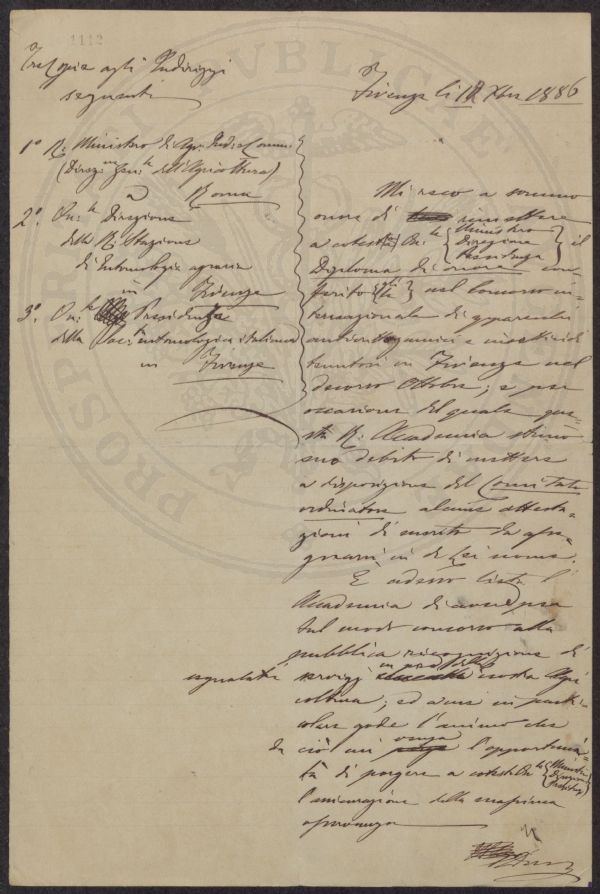 1112
Tre Copie agli Indirizzi
seguenti
Firenze li 12 Xbre 1886
1° R. Ministro di Agr. Ind. e Comm.
(Direz. Gen.le dell'Agricoltura)
a Roma
2°. On.le Direzione
della R. Stazione
di Entomologia agraria
in Firenze
3°. On.le Presidenza
della Soc. entomologica italiana
in Firenze
Mi reco a sommo
onore di rimettere
a cotesta On.le Ministro Direzione Presidenza il
Diploma di onore con
ferito nel Concorso in=
ternazionale di apparecchi
anticrittogamici e insetticidi
tenutosi in Firenze nel
decorso Ottobre; e per
occasione del quale que
sta R. Accademia stimò
suo debito di mettere
a disposizione del Comitato
ordinatore alcune attesta=
zioni di merito da asse=
gnarsi in di Lei nome.
E adesso lieta l'
Accademia di aver per
tal modo concorso alla
pubblica ricognizione di
servigi segnalati in pro della nostra Agri
coltura; ed a me in parti=
colare gode l'animo che
da ciò mi venga l'opportuni=
tà di porgere a cotesta On.le Ministro Direzione Presidenza
l'assicurazione della massima
osservanza